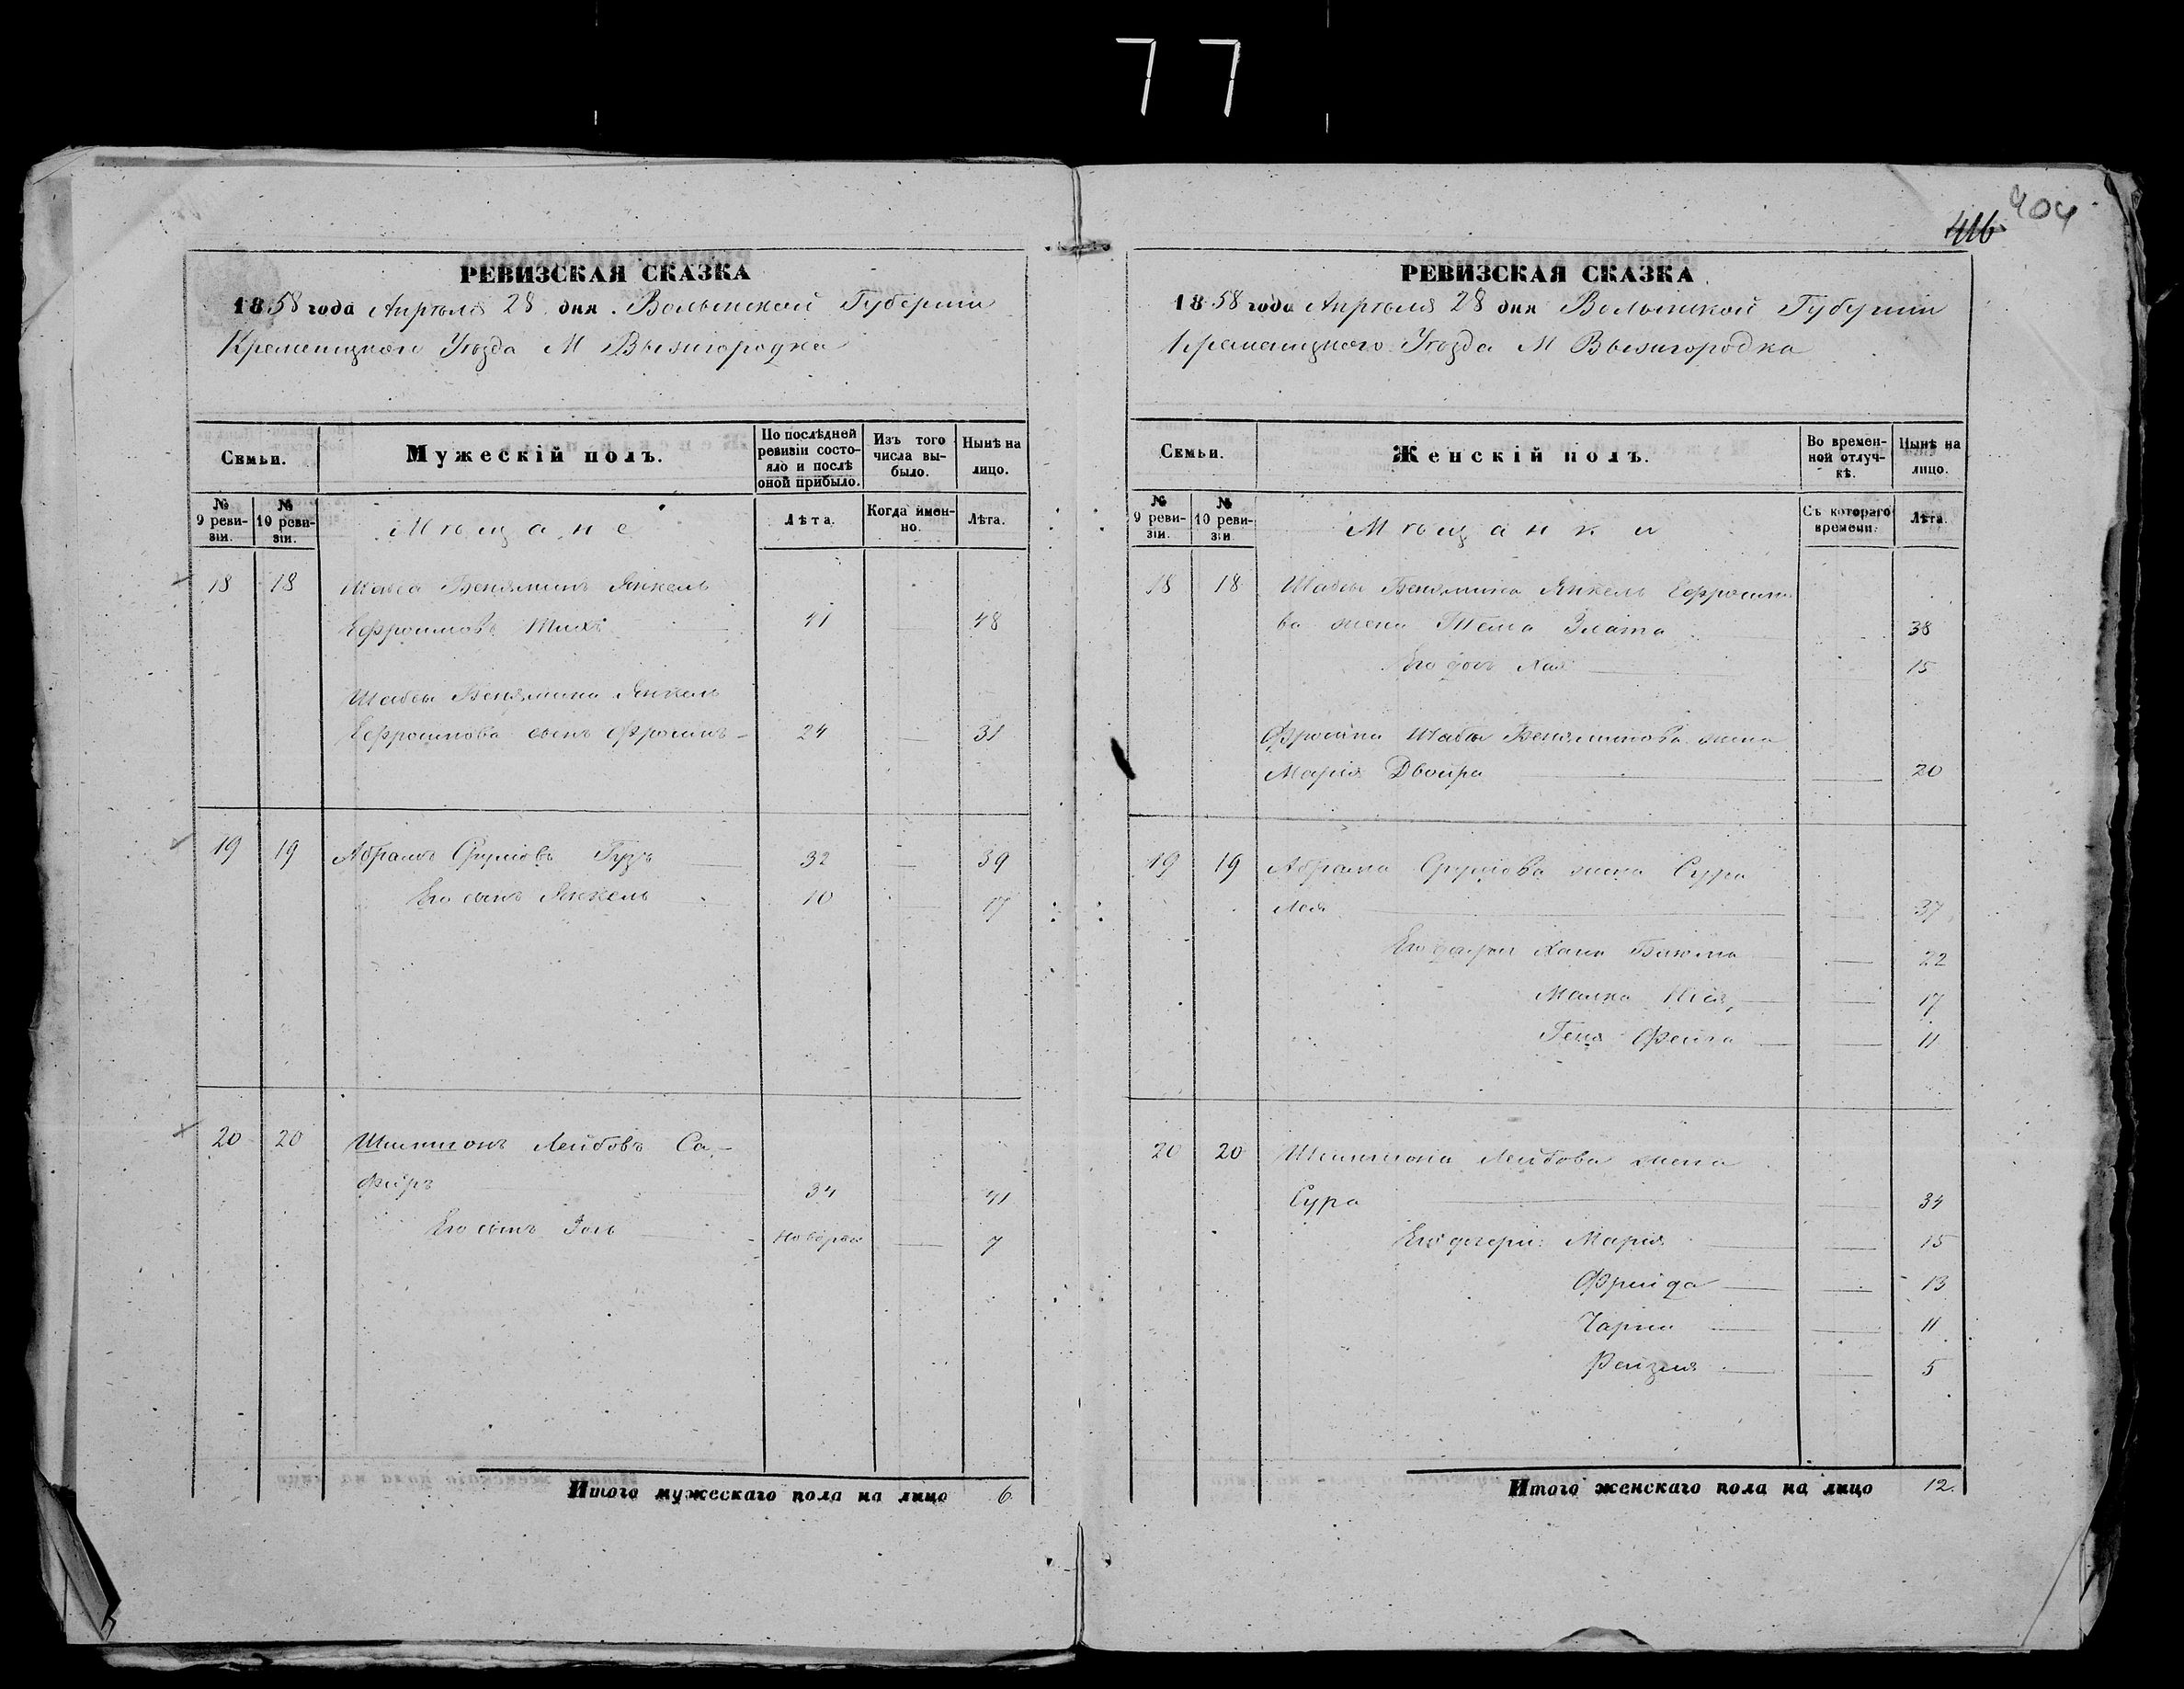 77
404
416
РЕВИЗСКАЯ СКАЗКА
1858 года Апрѣля 28 дня Волынской Губерніи
Кременецкаго Уѣзда М Вызшгородка
Семьи.
Мужескій полъ.
По послѣдней ревизіи состояло и послѣ оной прибыло.
Изъ того числа выбыло.
Нынѣ на лицо.
№ 9 ревизіи.
№ 10 ревизіи.
Мѣщане
Лѣта.
Когда именно.
Лѣта.
18 18 Шабса Беняминъ Янкель
41 48
Шабсы Беняминa Янкель
сынъ Фроимъ 24 31
19 19 Абрамъ Сруловъ Гузъ 32 39
Его сынъ Янкель 10 17
20 20 Шимшонъ Лейбовъ Са-
фиръ 34 41
Его сынъ Золь новорож 7
Итого мужескаго пола на лицо 6
РЕВИЗСКАЯ СКАЗКА
1858 года Апрѣля 28 дня Волынской Губерніи
Кременецкаго Уѣзда М Вызшгородка
Семьи.
Женскій полъ.
Во временной отлучкѣ.
Нынѣ на лицо.
№ 9 ревизіи.
№ 10 ревизіи
Мѣщанки
Съ котораго времени.
Лѣта.
18 18 Шабсы Беняминa Янкель
ва жена Злата 38
Его дочь Хая 15
Фроима Шабсы Беняминова жена
Марія Двойра 20
19 19 Абрама Срулова жена Сура
Лея 37
Его дочери Хана 22
Малка 17
Геня Фейга 11
20 20 Шимшона Лейбова жена
Сура 34
Его дочери: Марія 15
Фрейда 13
Чарна 11
Рейзля 5
Итого женскаго пола на лицо 12.